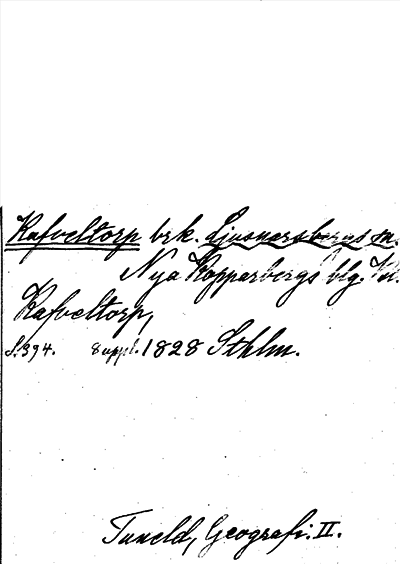 Kafveltorp brk. Ljusnarsbergs sn.
Nya Kopparbergs blg.
Kafveltorp,
S. 394. 8 uppl. 1828 Sthlm.
Tuneld, Geografi. II.